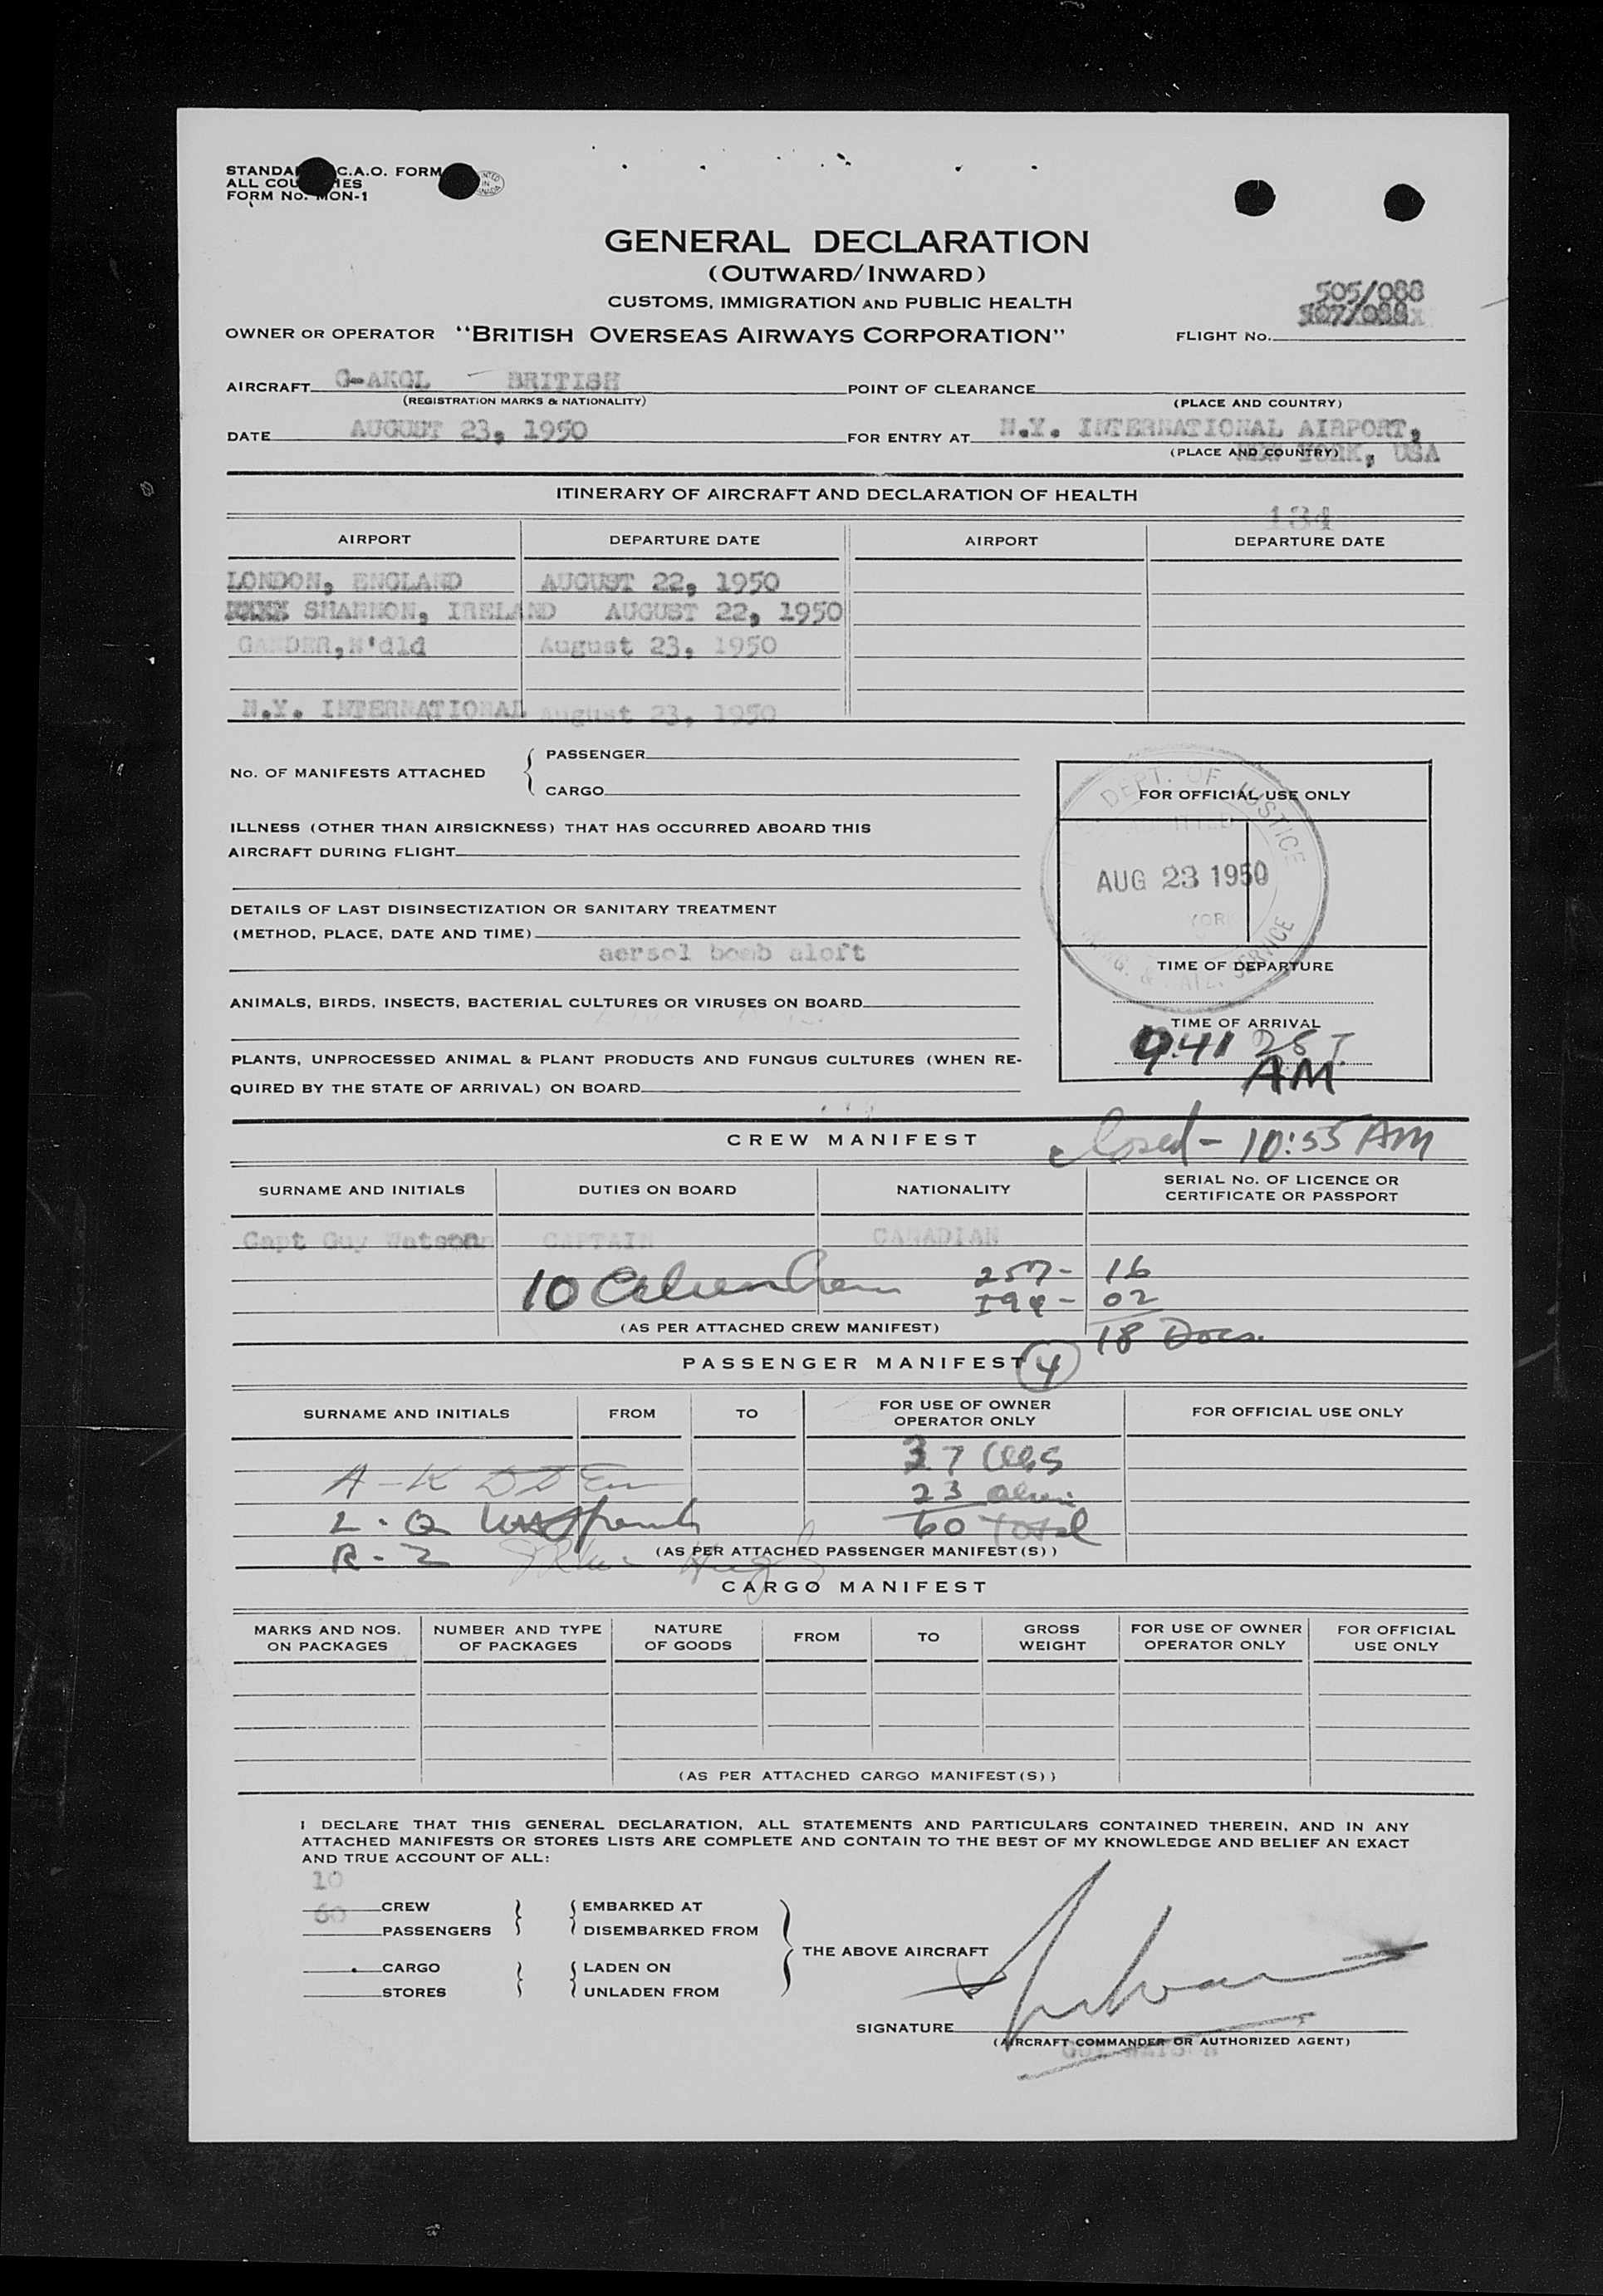 STANDA C.A.O. FORM
ALL COU IES
FORM No. MON-1
GENERAL DECLARATION
(OUTWARD/INWARD)
CUSTOMS, IMMIGRATION AND PUBLIC HEALTH
505/088
OWNER OR OPERATOR "BRITISH OVERSEAS AIRWAYS CORPORATION" FLIGHT No.
AIRCRAFT G-AKGL - BRITISH POINT OF CLEARANCE
(REGISTRATION MARKS & NATIONALITY) (PLACE AND COUNTRY)
DATE AUGUST 23, 1950 FOR ENTRY AT N.Y. INTERNATIONAL AIRPORT,
(PLACE AND COUNTRY) NEW YORK, USA
ITINERARY OF AIRCRAFT AND DECLARATION OF HEALTH
134
AIRPORT DEPARTURE DATE AIRPORT DEPARTURE DATE
LONDON, ENGLAND AUGUST 22, 1950
SHANNON, IRELAND AUGUST 22, 1950
GANDER,N'dld August 23, 1950
N.Y. INTERNATIONAL August 23, 1950
No. OF MANIFESTS ATTACHED { PASSENGER
CARGO
FOR OFFICIAL USE ONLY
DEPT. OF JUSTICE
ILLNESS (OTHER THAN AIRSICKNESS) THAT HAS OCCURRED ABOARD THIS
AIRCRAFT DURING FLIGHT
AUG 23 1950
DETAILS OF LAST DISINSECTIZATION OR SANITARY TREATMENT
(METHOD, PLACE, DATE AND TIME)
aersol bomb aloft
SERVICE
TIME OF DEPARTURE
ANIMALS, BIRDS, INSECTS, BACTERIAL CULTURES OR VIRUSES ON BOARD
TIME OF ARRIVAL
9:41
AM
PLANTS, UNPROCESSED ANIMAL & PLANT PRODUCTS AND FUNGUS CULTURES (WHEN RE-
QUIRED BY THE STATE OF ARRIVAL) ON BOARD
CREW MANIFEST closed - 10:55 AM
SURNAME AND INITIALS DUTIES ON BOARD NATIONALITY SERIAL No. OF LICENCE OR
CERTIFICATE OR PASSPORT
Capt Guy Watson CAPTAIN CANADIAN
10 257- 16
I94- 02
(AS PER ATTACHED CREW MANIFEST) 18 Docs.
PASSENGER MANIFEST 4
SURNAME AND INITIALS FROM TO FOR USE OF OWNER
OPERATOR ONLY FOR OFFICIAL USE ONLY
37
A-K 23
L-Q 60 Total
R-Z (AS PER ATTACHED PASSENGER MANIFEST(S))
CARGO MANIFEST
MARKS AND NOS.
ON PACKAGES NUMBER AND TYPE
OF PACKAGES NATURE
OF GOODS FROM TO GROSS
WEIGHT FOR USE OF OWNER
OPERATOR ONLY FOR OFFICIAL
USE ONLY
(AS PER ATTACHED CARGO MANIFEST(S))
I DECLARE THAT THIS GENERAL DECLARATION, ALL STATEMENTS AND PARTICULARS CONTAINED THEREIN, AND IN ANY
ATTACHED MANIFESTS OR STORES LISTS ARE COMPLETE AND CONTAIN TO THE BEST OF MY KNOWLEDGE AND BELIEF AN EXACT
AND TRUE ACCOUNT OF ALL:
10
CREW { EMBARKED AT
60
PASSENGERS DISEMBARKED FROM
THE ABOVE AIRCRAFT
CARGO { LADEN ON
STORES UNLADEN FROM
SIGNATURE
(AIRCRAFT COMMANDER OR AUTHORIZED AGENT)
GUY WATSON